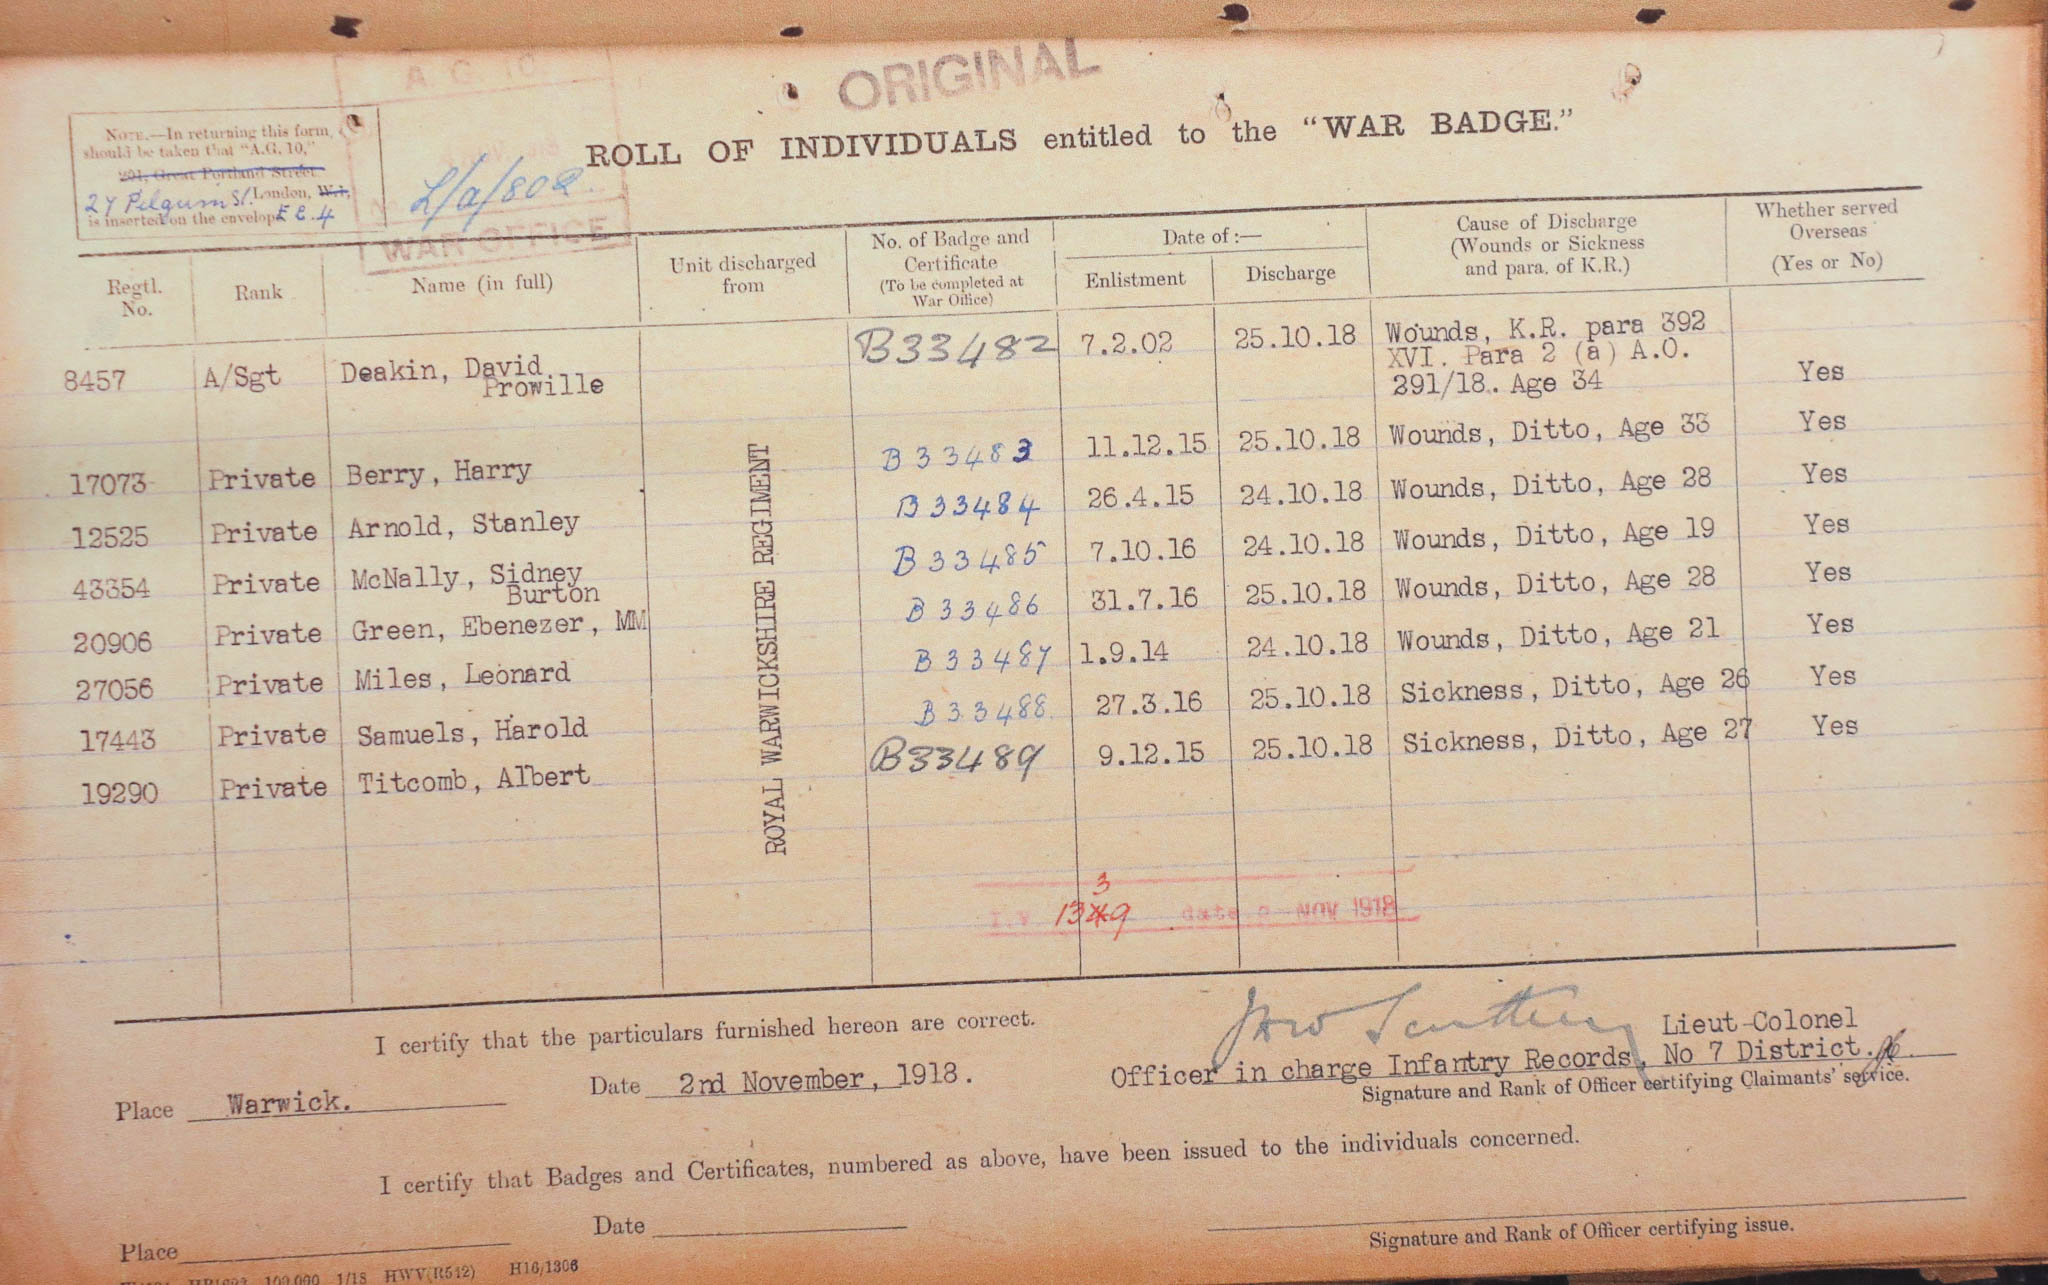 A. G. 10.
ORIGINAL
NOTE.—In returning this form,
should be taken that "A.G. 10,"
201, Great Portland Street
27 Pilgrim St. London, W.1,
is inserted on the envelope E C. 4
L/a/802
WAR OFFICE
ROLL OF INDIVIDUALS entitled to the "WAR BADGE."
Regtl. No.
Rank
Name (in full)
Unit discharged from
No. of Badge and Certificate
(To be completed at War Office)
Date of :—
Enlistment
Discharge
Cause of Discharge
(Wounds or Sickness
and para. of K.R.)
Whether served
Overseas
(Yes or No)
8457 A/Sgt Deakin, David Prowille B33482 7.2.02 25.10.18 Wounds, K.R. para 392
XVI. Para 2 (a) A.O.
291/18. Age 34 Yes
17073 Private Berry, Harry B33483 11.12.15 25.10.18 Wounds, Ditto, Age 33 Yes
12525 Private Arnold, Stanley B33484 26.4.15 24.10.18 Wounds, Ditto, Age 28 Yes
43354 Private McNally, Sidney Burton B33485 7.10.16 24.10.18 Wounds, Ditto, Age 19 Yes
20906 Private Green, Ebenezer, MM B33486 31.7.16 25.10.18 Wounds, Ditto, Age 28 Yes
27056 Private Miles, Leonard B33487 1.9.14 24.10.18 Wounds, Ditto, Age 21 Yes
17443 Private Samuels, Harold B33488 27.3.16 25.10.18 Sickness, Ditto, Age 26 Yes
19290 Private Titcomb, Albert B33489 9.12.15 25.10.18 Sickness, Ditto, Age 27 Yes
ROYAL WARWICKSHIRE REGIMENT
3
I.V. 1349 date NOV 1918
I certify that the particulars furnished hereon are correct.
Lieut-Colonel
Place Warwick. Date 2nd November, 1918. Officer in charge Infantry Records, No 7 District.
Signature and Rank of Officer certifying Claimants' service.
I certify that Badges and Certificates, numbered as above, have been issued to the individuals concerned.
Place Date
Signature and Rank of Officer certifying issue.
100,000 1/18 HWV(R542) H16/1306